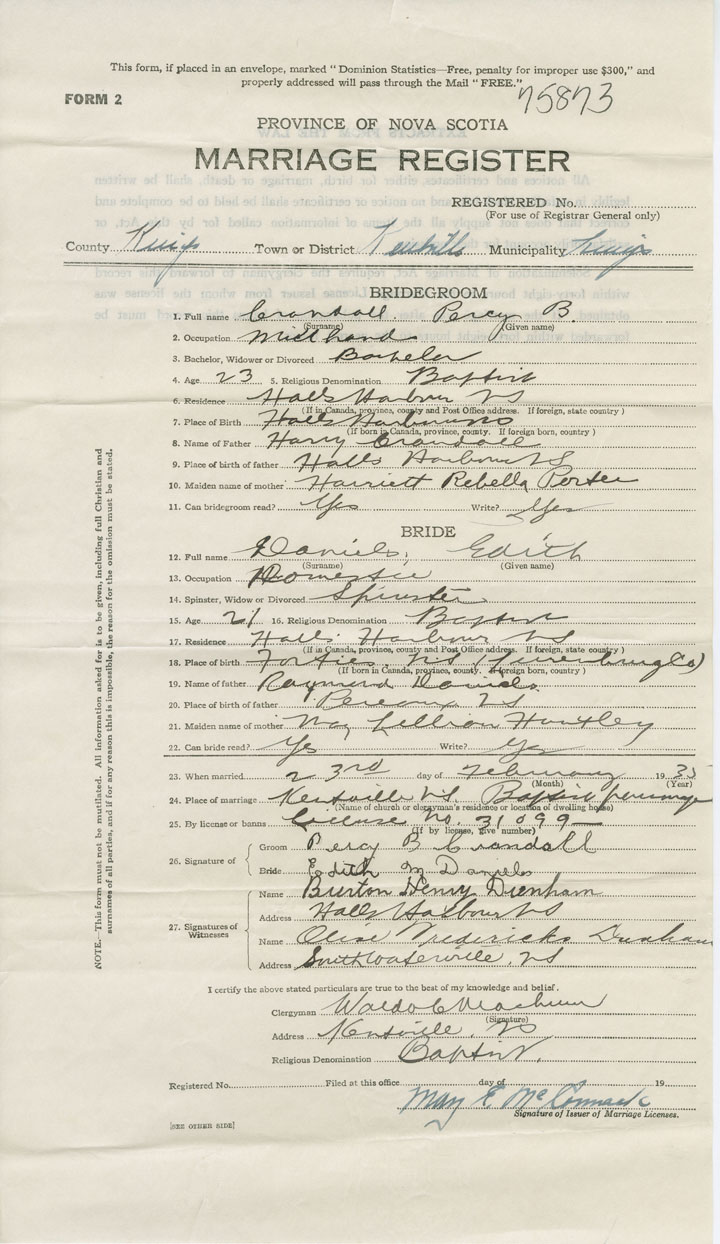 This form, if placed in an envelope, marked "Dominion Statistics—Free, penalty for improper use $300," and
properly addressed will pass through the Mail "FREE."
FORM 2
75873
PROVINCE OF NOVA SCOTIA
MARRIAGE REGISTER
REGISTERED No.
(For use of Registrar General only)
County Kings Town or District Kentville Municipality Kings
BRIDEGROOM
1. Full name Crandall. Percy B.
(Surname) (Given name)
2. Occupation
3. Bachelor, Widower or Divorced Bachelor
4. Age 23 5. Religious Denomination Baptist
6. Residence Halls Harbour NS
(If in Canada, province, county and Post Office address. If foreign, state country)
7. Place of Birth Halls Harbour NS
(If born in Canada, province, county. If foreign born, country)
8. Name of Father Harry Crandall
9. Place of birth of father Halls Harbour NS
10. Maiden name of mother Harriett Rebella Porter
11. Can bridegroom read? Yes Write? Yes
BRIDE
12. Full name Daniels, Edith
(Surname) (Given name)
13. Occupation Domestic
14. Spinster, Widow or Divorced Spinster
15. Age 21 16. Religious Denomination Baptist
17. Residence Halls Harbour NS
(If in Canada, province, county and Post Office address. If foreign, state country)
18. Place of birth Forties, NS (Lunenburg Co)
(If born in Canada, province, county. If foreign born, country)
19. Name of father Raymond Daniels
20. Place of birth of father NS
21. Maiden name of mother May Lillian Huntley
22. Can bride read? Yes Write? Yes
23. When married 23rd day of February 1935
(Month) (Year)
24. Place of marriage Kentville NS Baptist parsonage
(Name of church or clergyman's residence or location of dwelling house)
25. By license or banns License No. 31099
(If by license, give number)
26. Signature of
Groom Percy B Crandall
Bride Edith M Daniels
27. Signatures of Witnesses
Name Burton Henry Dunham
Address Halls Harbour NS
Name Olive Fredericks Dunham
Address South Waterville, NS
I certify the above stated particulars are true to the best of my knowledge and belief.
Clergyman Waldo C Machum
(Signature)
Address Kentville, NS
Religious Denomination Baptist.
Registered No. Filed at this office day of 19
May E. McCormack
Signature of Issuer of Marriage Licenses.
[SEE OTHER SIDE]
NOTE.—This form must not be mutilated. All information asked for is to be given, including full Christian and
surnames of all parties, and if for any reason this is impossible, the reason for the omission must be stated.